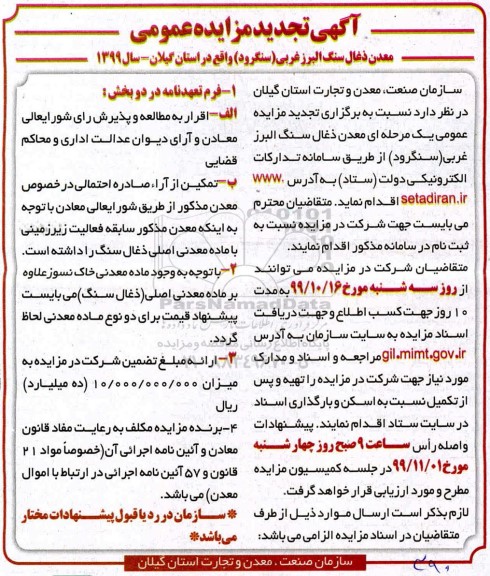 آگهی تجدید مزایده عمومی
معدن ذغال سنگ البرز غربی (سنگرود) واقع در استان گیلان – سال ۱۳۹۹
سازمان صنعت، معدن و تجارت استان گیلان
در نظر دارد نسبت به برگزاری تجدید مزایده
عمومی یک مرحله ای معدن ذغال سنگ البرز
غربی(سنگرود) از طریق سامانه تدارکات
الکترونیکی دولت (ستاد) به آدرس www.
setadiran.ir اقدام نماید. متقاضیان محترم
می بایست جهت شرکت در مزایده نسبت به
ثبت نام در سامانه مذکور اقدام نمایند.
متقاضیان شرکت در مزایده می توانند
از روز سه شنبه مورخ ۹۹/۱۰/۱۶ به مدت
۱۰ روز جهت کسب اطلاع و جهت دریافت
اسناد مزایده به سایت سازمان به آدرس
gil.mimt.gov.ir مراجعه و اسناد و مدارک
مورد نیاز جهت شرکت در مزایده را تهیه و پس
از تکمیل نسبت به اسکن و بارگذاری اسناد
در سایت ستاد اقدام نمایند. پیشنهادات
واصله رأس ساعت ۹ صبح روز چهار شنبه
مورخ ۹۹/۱۱/۰۱ در جلسه کمیسیون مزایده
مطرح و مورد ارزیابی قرار خواهد گرفت.
لازم بذکر است ارسال موارد ذیل از طرف
متقاضیان در اسناد مزایده الزامی می باشد:
۱– فرم تعهدنامه در دو بخش:
الف– اقرار به مطالعه و پذیرش رای شورایعالی
معادن و آرای دیوان عدالت اداری و محاکم
قضایی
ب– تمکین از آراء صادره احتمالی در خصوص
معدن مذکور از طریق شورایعالی معادن با توجه
به اینکه معدن مذکور سابقه فعالیت زیرزمینی
با ماده معدنی اصلی ذغال سنگ را داشته است.
۲– با توجه به وجود ماده معدنی خاک نسوز علاوه
بر ماده معدنی اصلی(ذغال سنگ) می بایست
پیشنهاد قیمت برای دو نوع ماده معدنی لحاظ
گردد.
۳– ارائه مبلغ تضمین شرکت در مزایده به
میزان ۱۰/۰۰۰/۰۰۰/۰۰۰ (ده میلیارد)
ریال
۴– برنده مزایده مکلف به رعایت مفاد قانون
معادن و آئین نامه اجرائی آن(خصوصاً مواد ۲۱
قانون و ۵۷ آئین نامه اجرائی در ارتباط با اموال
معدن) می باشد.
* سازمان در رد یا قبول پیشنهادات مختار
می باشد*
سازمان صنعت، معدن و تجارت استان گیلان
ParsNamadData